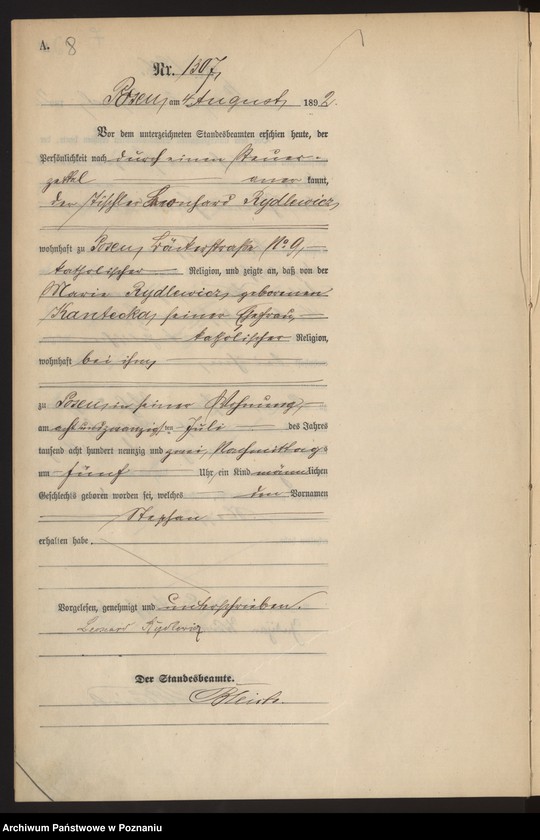 A. 8
Nr. 1307,
Posen, am 4 August, 1892.
Vor dem unterzeichneten Standesbeamten erschien heute, der
Persönlichkeit nach durch einen Steuer-
zettel aner kannt,
der Tischler Leonhard Rydlewicz,
wohnhaft zu Posen, Bäckerstraße No 9,
katholischer Religion, und zeigte an, daß von der
Marie Rydlewicz, geborenen
Kantecka, seiner Ehefrau,
katholischer Religion,
wohnhaft bei ihm,
zu Posen, in seiner Wohnung,
am acht und zwanzigsten Juli des Jahres
tausend acht hundert neunzig und zwei, Nachmittags
um fünf Uhr, ein Kind männlichen
Geschlechts geboren worden sei, welches den Vornamen
Stephan
erhalten habe.
Vorgelesen, genehmigt und unterschrieben.
Rydlewicz
Der Standesbeamte.
Archiwum Państwowe w Poznaniu